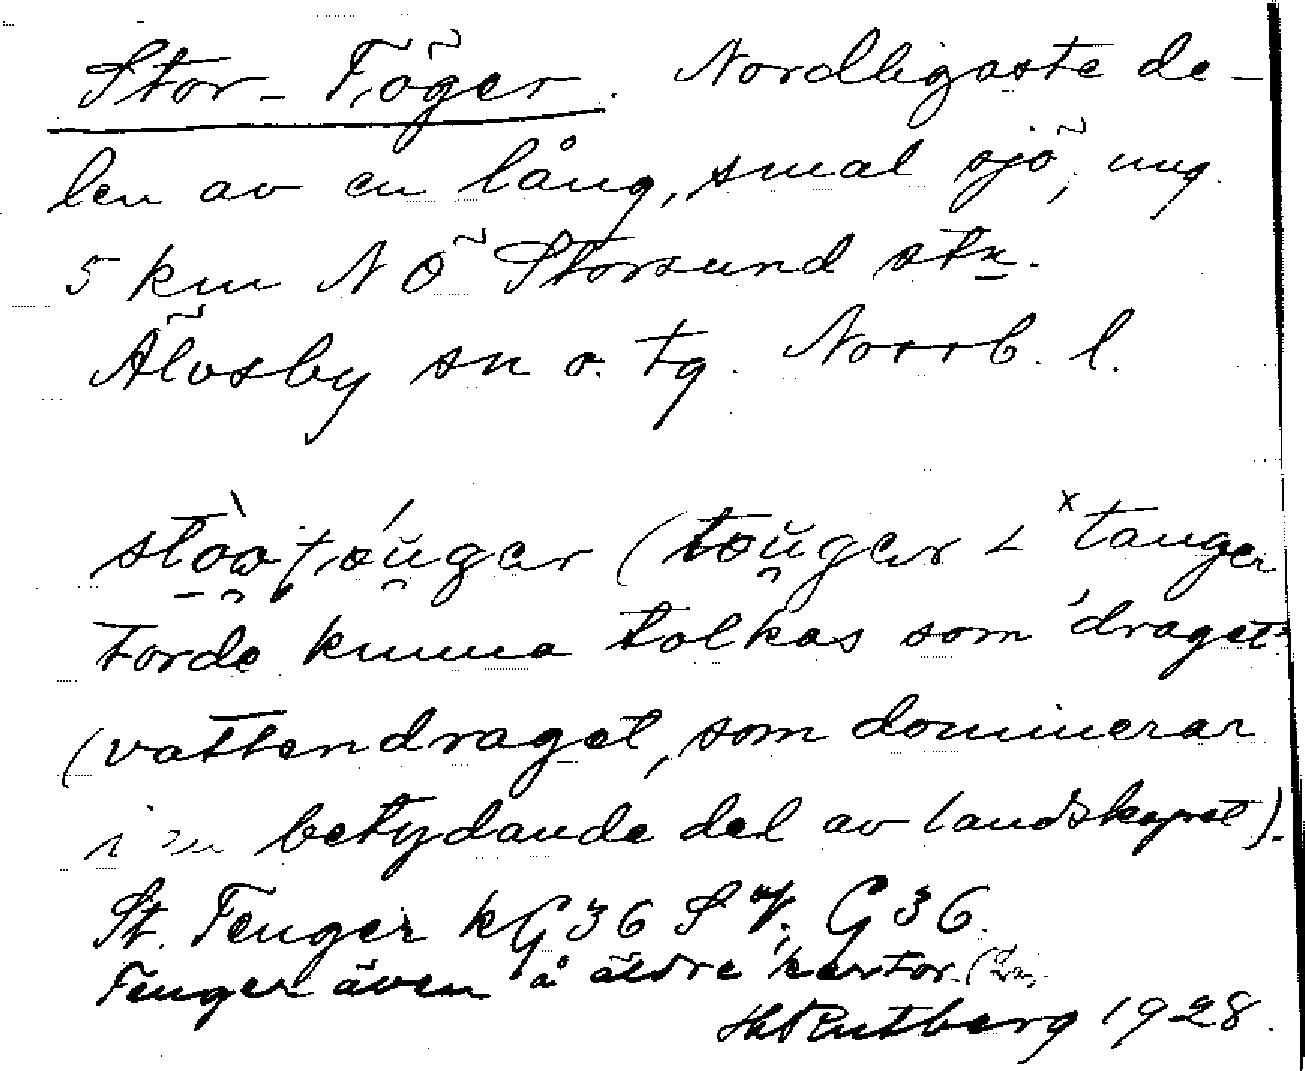 Stor-Töger. Nordligaste de-
len av en lång, smal sjö, ung.
5 km N Ö Storsund stn.
Älvsby sn o. tg. Norrb. l.
(töu̯ger < ˣtauger
torde kunna tolkas som 'draget'
(vattendraget, som dominerar
i en betydande del av landskapet).
St. Teuger kG36 S V; G36.
Teuger även å äldre kartor.
H Rutberg 1928.